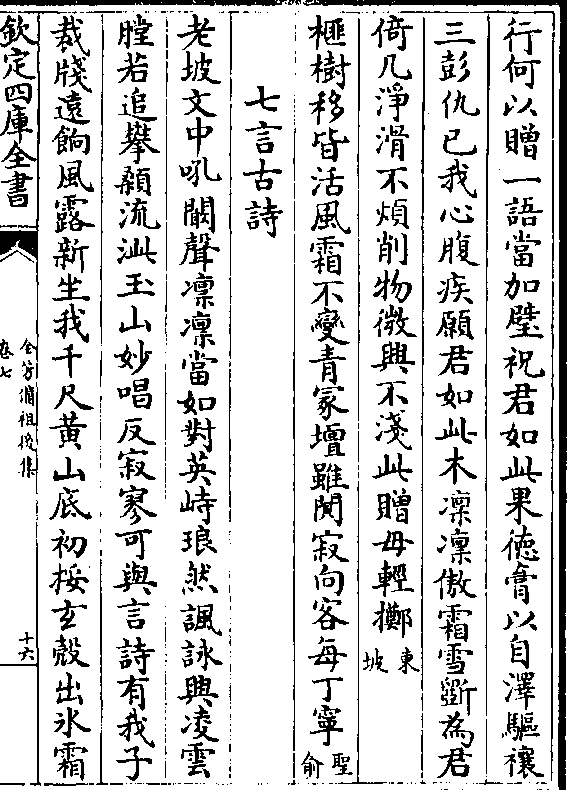 行何以贈一語當加璧祝君如此果徳膏以自澤驅禳
三彭仇已我心腹疾願君如此木凜凜傲霜雪斵為君
倚几淨滑不煩削物微興不淺此贈毋輕擲東坡
榧樹移皆活風霜不變青冢壇雖閴寂向客每丁寧聖俞
七言古詩
老坡文中吼闞聲凛凛當如對英峙琅然諷詠興凌雲
瞠若追攀顙流泚玉山妙唱反寂寥可與言詩有我子
裁牋遠餉風露新生我千尺黄山底初挼玄殼出氷霜
欽定四庫全書
全芳備祖後集
卷七
十六